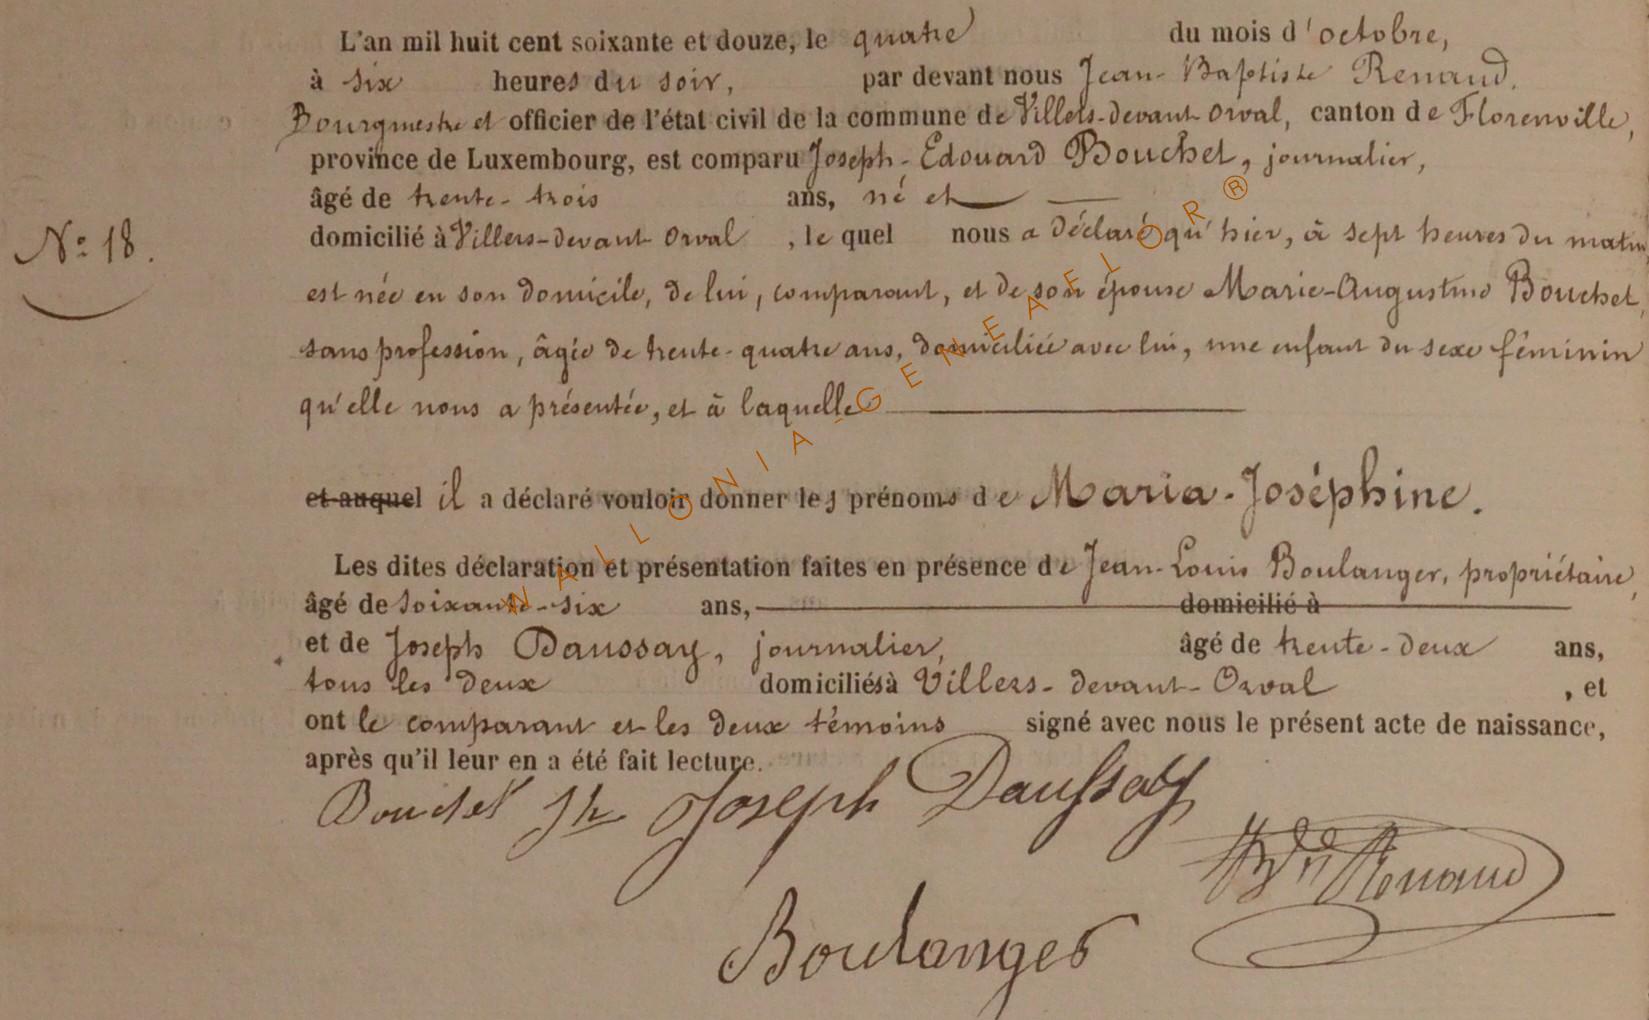 L'an mil huit cent soixante et douze, le quatre du mois d'octobre,
à six heures du soir, par devant nous Jean-Baptiste Renaud.
Bourgmestre et officier de l'état civil de la commune de Villers-devant-Orval, canton de Florenville,
province de Luxembourg, est comparu Joseph-Edouard Bouchet, journalier,
âgé de trente-trois ans, né et
domicilié à Villers-devant-Orval, le quel nous a déclaré qu'hier, à sept heures du matin,
N° 18.
est née en son domicile, de lui, comparant, et de son épouse Marie-Augustine Bouchet,
sans profession, âgée de trente-quatre ans, domiciliée avec lui, une enfant du sexe féminin
qu'elle nous a présentée, et à laquelle
et auquel il a déclaré vouloir donner les prénoms de Maria-Joséphine.
Les dites déclaration et présentation faites en présence de Jean-Louis Boulanger, propriétaire,
âgé de soixante-six ans, domicilié à
et de Joseph Daussay, journalier, âgé de trente-deux ans,
tous les deux domiciliés à Villers-devant-Orval, et
ont le comparant et les deux témoins signé avec nous le présent acte de naissance,
après qu'il leur en a été fait lecture.
Bouchet Jh Joseph Daussay
Renaud
Boulanger
WALLONIA-GENEAFLOR®